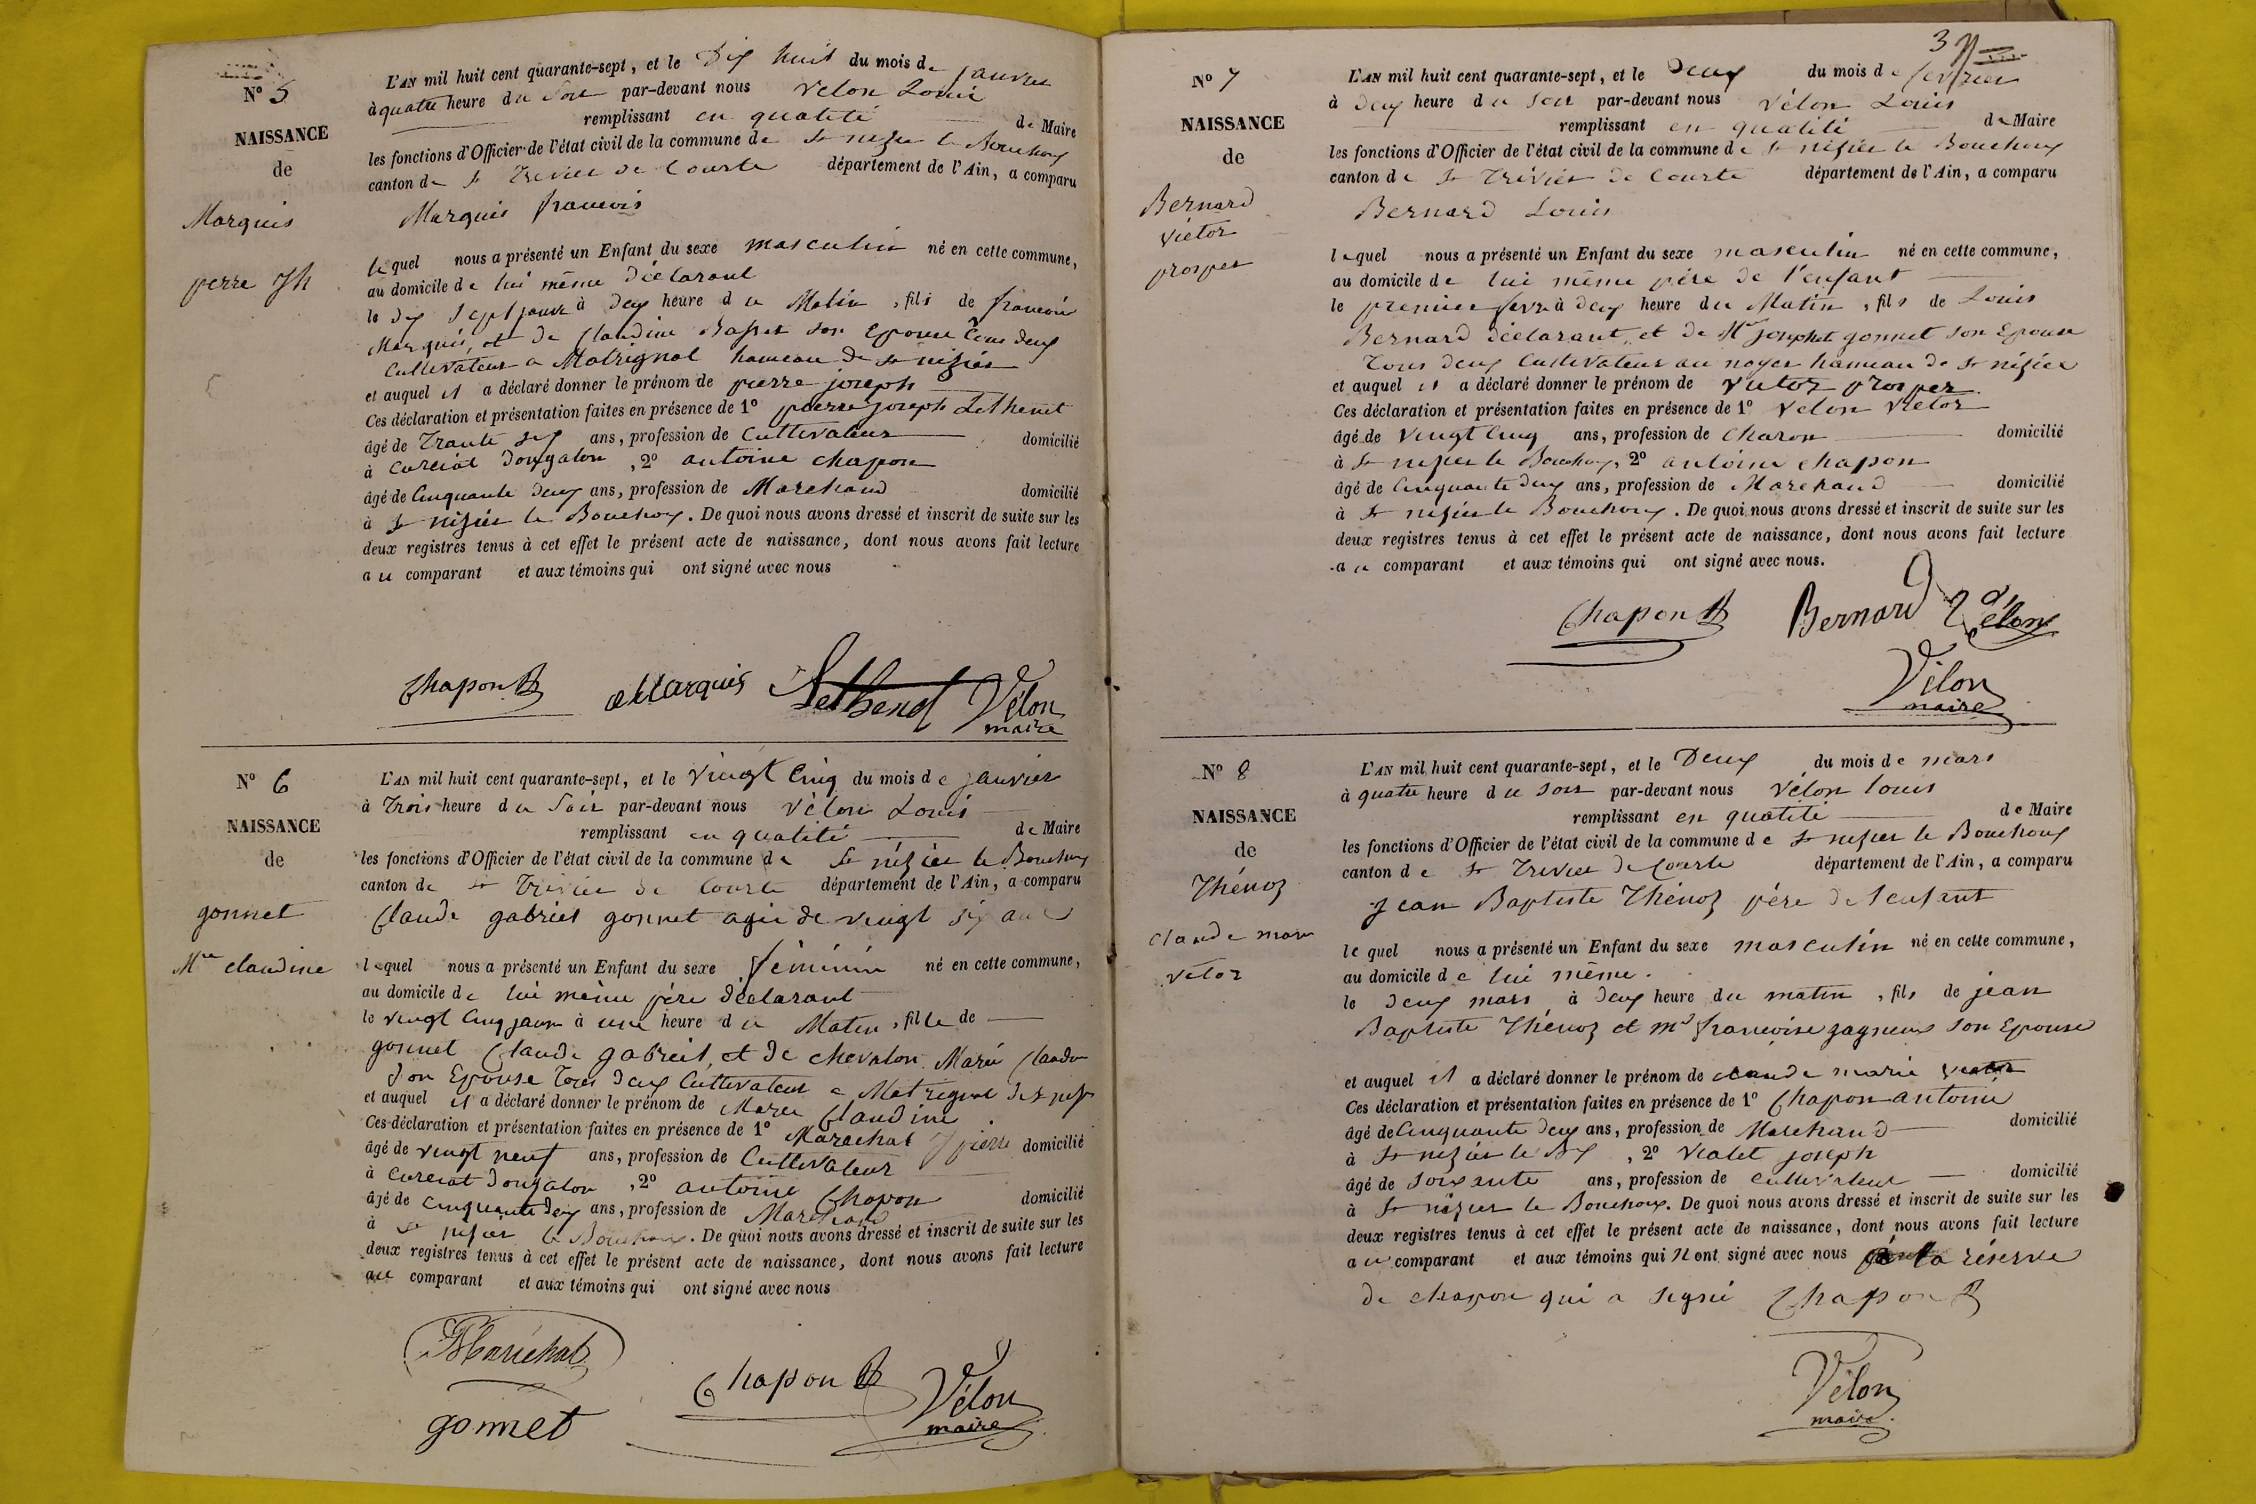 N° 5
NAISSANCE
de
Marquis
pierre Jh
L'AN mil huit cent quarante-sept, et le Dix huit du mois de janvier
à quatre heure du soir par-devant nous Vélon Louis
remplissant en qualité de Maire
les fonctions d'Officier de l'état civil de la commune de St nizier le Bouchoux
canton de St Trivier de Courte département de l'Ain, a comparu
Marquis francois
lequel nous a présenté un Enfant du sexe masculin né en cette commune,
au domicile de lui même déclarant
le dix sept janv à deux heure du Matin, fils de francois
Marquis, et de Claudine Basset son Epouse Tous deux
Cultivateur a Matrignat hameau de St nizier
et auquel il a déclaré donner le prénom de pierre joseph
Ces déclaration et présentation faites en présence de 1° pierre joseph Lethenet
âgé de Trante six ans, profession de Cultivateur domicilié
à Curciat dongalon, 2° antoine chapon
âgé de Cinquante deux ans, profession de Marchand domicilié
à St nizier le Bouchoux. De quoi nous avons dressé et inscrit de suite sur les
deux registres tenus à cet effet le présent acte de naissance, dont nous avons fait lecture
au comparant et aux témoins qui ont signé avec nous
Chapon Marquis Lethenet Vélon
maire
N° 6
NAISSANCE
de
gonnet
Mie claudine
L'AN mil huit cent quarante-sept, et le vingt Cinq du mois de janvier
à Trois heure du Soir par-devant nous Vélon Louis
remplissant en qualité de Maire
les fonctions d'Officier de l'état civil de la commune de St nizier le Bouchoux
canton de St Trivier de Courte département de l'Ain, a comparu
Claude gabriel gonnet agée de vingt six ans
lequel nous a présenté un Enfant du sexe féminin né en cette commune,
au domicile de lui même père déclarant
le vingt Cinq janv à une heure du Matin, fille de
gonnet Claude gabriel, et de chevalon Marie Claudine
son Epouse Tous deux Cultivateur a Matrignat
et auquel il a déclaré donner le prénom de Marie Claudine
Ces déclaration et présentation faites en présence de 1° Marechal J pierre
âgé de vingt neuf ans, profession de Cultivateur domicilié
à Curciat dongalon, 2° antoine Chapon
âgé de cinquante deux ans, profession de Marchand domicilié
à St nizier le Bouchoux. De quoi nous avons dressé et inscrit de suite sur les
deux registres tenus à cet effet le présent acte de naissance, dont nous avons fait lecture
au comparant et aux témoins qui ont signé avec nous
Maréchal
Chapon Vélon
gonnet maire
3
N° 7
NAISSANCE
de
Bernard
victor
prosper
L'AN mil huit cent quarante-sept, et le Deux du mois de fevrier
à deux heure du soir par-devant nous Vélon Louis
remplissant en qualité de Maire
les fonctions d'Officier de l'état civil de la commune de St nizier le Bouchoux
canton de St Trivier de Courte département de l'Ain, a comparu
Bernard Louis
lequel nous a présenté un Enfant du sexe masculin né en cette commune,
au domicile de lui même père de l'enfant
le premier fevr à deux heure du Matin, fils de Louis
Bernard déclarant, et de Mie Josephet gonnet son Epouse
Tous deux Cultivateur au noyer hameau de St nizier
et auquel il a déclaré donner le prénom de victor prosper
Ces déclaration et présentation faites en présence de 1° Velon victor
âgé de vingt Cinq ans, profession de Charon domicilié
à St nizier le Bouchoux, 2° antoine chapon
âgé de Cinquante deux ans, profession de Marchand domicilié
à St nizier le Bouchoux. De quoi nous avons dressé et inscrit de suite sur les
deux registres tenus à cet effet le présent acte de naissance, dont nous avons fait lecture
au comparant et aux témoins qui ont signé avec nous.
Chapon Bernard Vélon
Vélon
maire
N° 8
NAISSANCE
de
Thénoz
claude marie
victor
L'AN mil huit cent quarante-sept, et le Deux du mois de mars
à quatre heure du soir par-devant nous Vélon louis
remplissant en qualité de Maire
les fonctions d'Officier de l'état civil de la commune de St nizier le Bouchoux
canton de St Trivier de Courte département de l'Ain, a comparu
Jean Baptiste Thénoz père de l'enfant
lequel nous a présenté un Enfant du sexe masculin né en cette commune,
au domicile de lui même.
le deux mars à deux heure du matin, fils de jean
Baptiste Thénoz et mie francoise gagneux son Epouse
et auquel il a déclaré donner le prénom de claude marie victor
Ces déclaration et présentation faites en présence de 1° Chapon antoine
âgé de Cinquante deux ans, profession de Marchand domicilié
à St nizier le Bx, 2° violet joseph
âgé de soixante ans, profession de cultivateur domicilié
à St nizier le Bouchoux. De quoi nous avons dressé et inscrit de suite sur les
deux registres tenus à cet effet le présent acte de naissance, dont nous avons fait lecture
au comparant et aux témoins qui n ont signé avec nous à la réserve
de chapon qui a signé Chapon
Vélon
maire